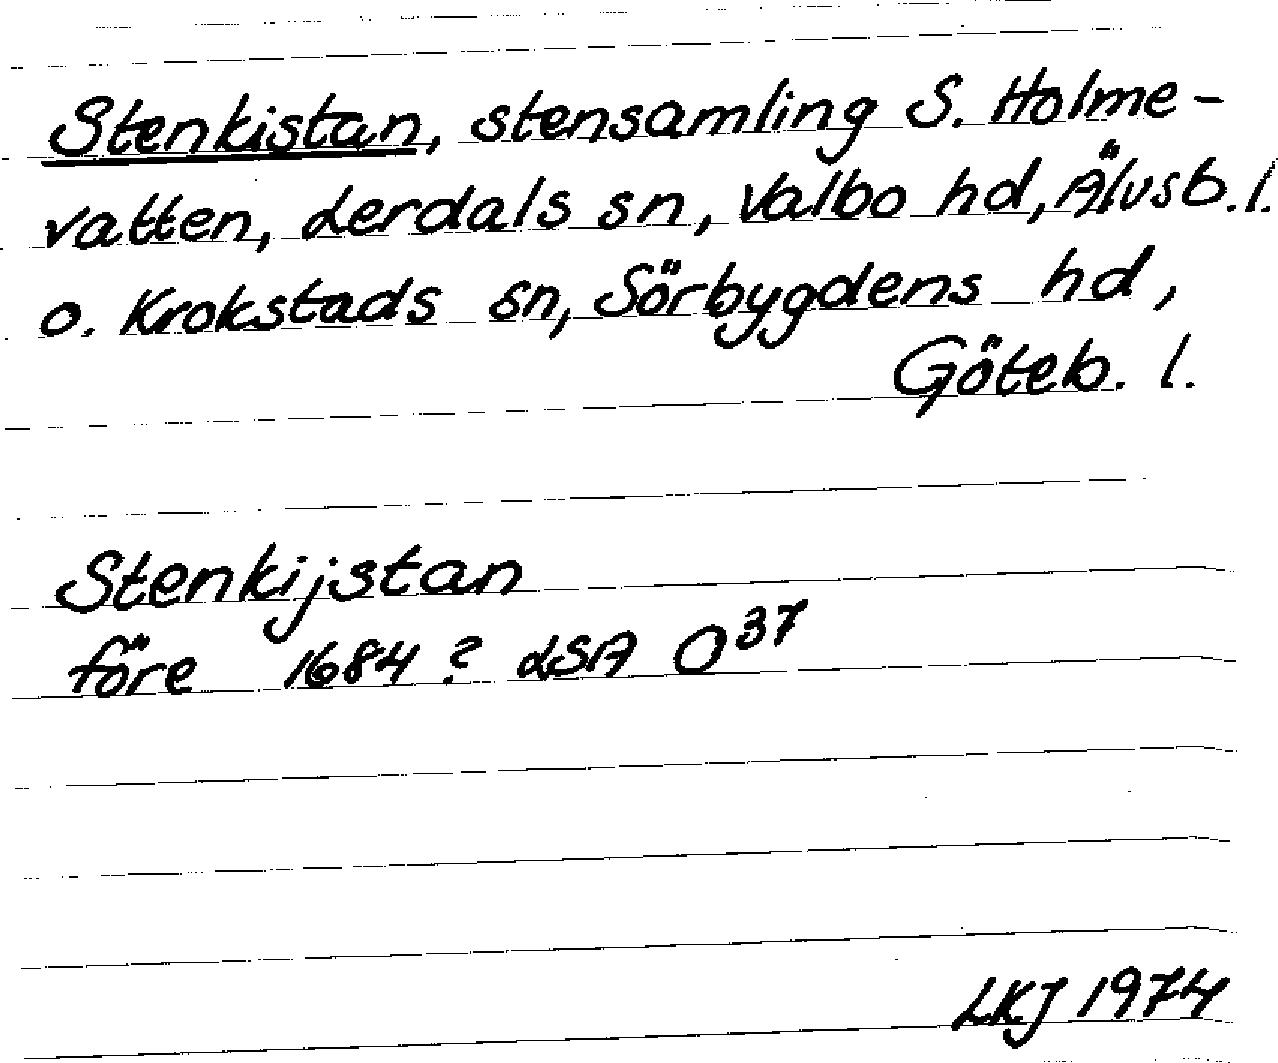 Stenkistan, stensamling S. Holme-
vatten, Lerdals sn, Valbo hd, Älvsb. l.
o. Krokstads sn, Sörbygdens hd,
Göteb. l.
Stenkijstan
före 1684? LSA O37
LKJ 1974